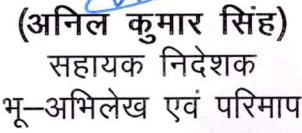 (अनिल कुमार सिंह)
सहायक निदेशक
भू–अभिलेख एवं परिमाप